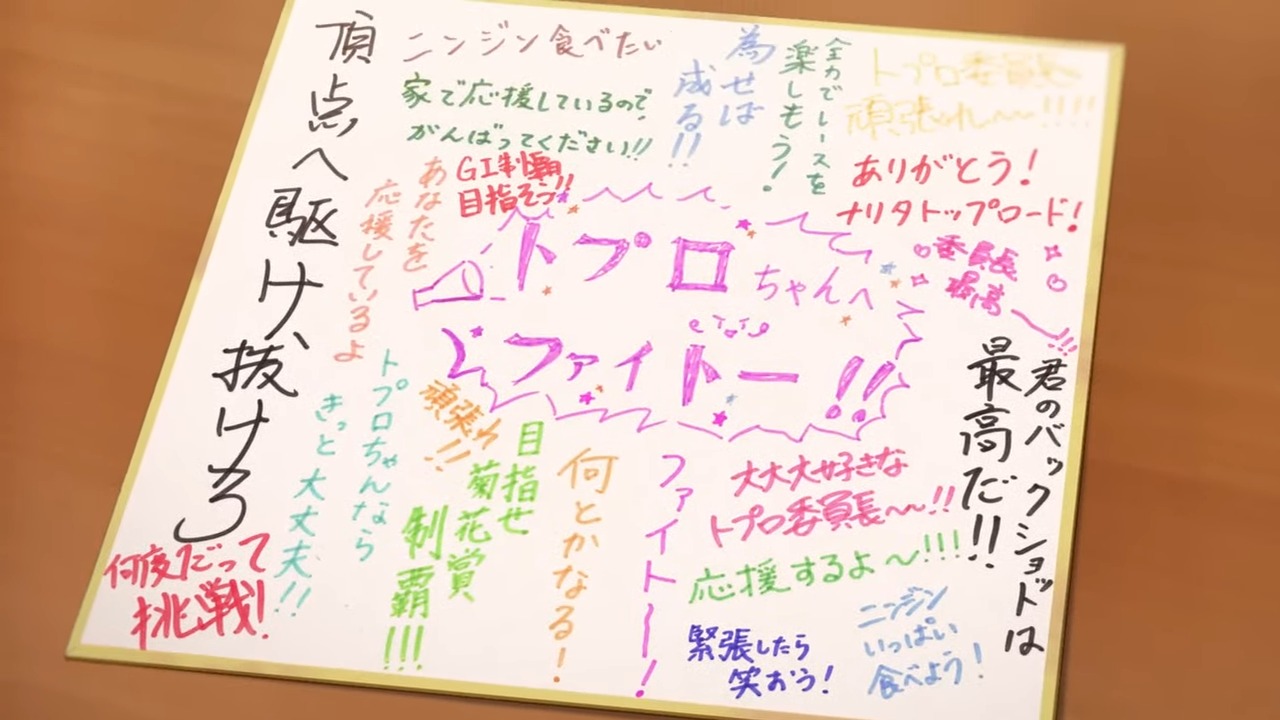 頂点へ駆け抜けろ
ニンジン食べたい
家で応援しているので、
がんばってください!!
為せば
成る!!
全力でレースを
楽しもう!
トプロ委員長
頑張れ〜〜!!!!
ありがとう!
ナリタトップロード!
GI制覇
目指そう!!
あなたを
応援しているよ
トプロちゃんへ
ファイトー!!
委員長
最高〜!!!
君のバックショットは
最高だ!!
トプロちゃんなら
きっと大丈夫!!
頑張れ!!
目指せ
菊花賞
制覇!!!
何とかなる!
ファイト〜!
大大大好きな
トプロ委員長〜〜!!
応援するよ〜!!!
何度だって
挑戦!
緊張したら
笑おう!
ニンジン
いっぱい
食べよう!